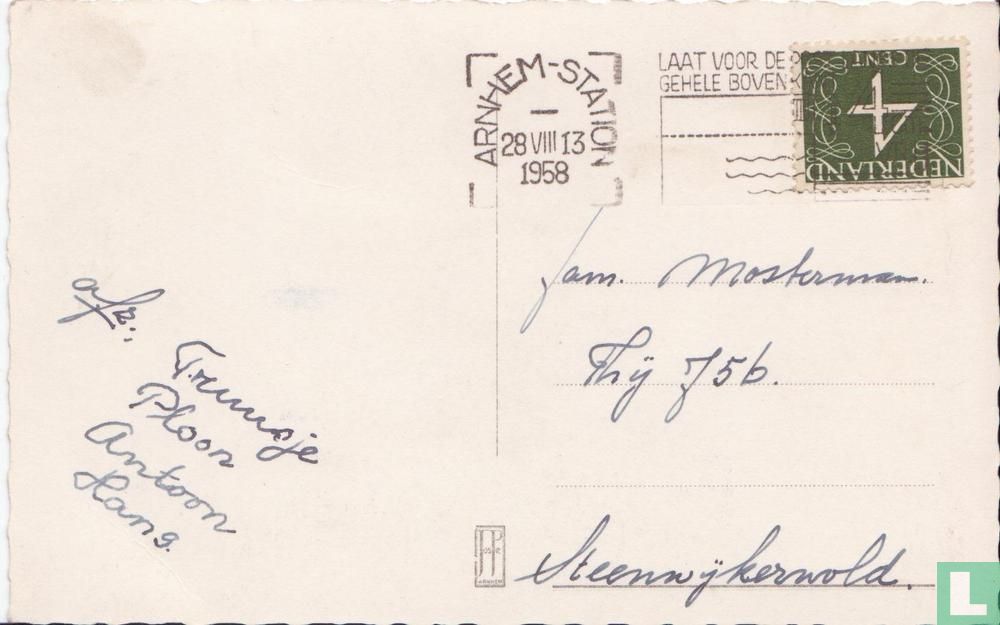 ARNHEM-STATION
28 VIII 13
1958
LAAT VOOR DE
GEHELE BOVEN
CENT
4
NEDERLAND
fam. Mosterman.
Thij 75b.
Steenwijkerwold.
afz:
Truusje
Ploon
Antoon
Hans.
JP
ARNHEM
L